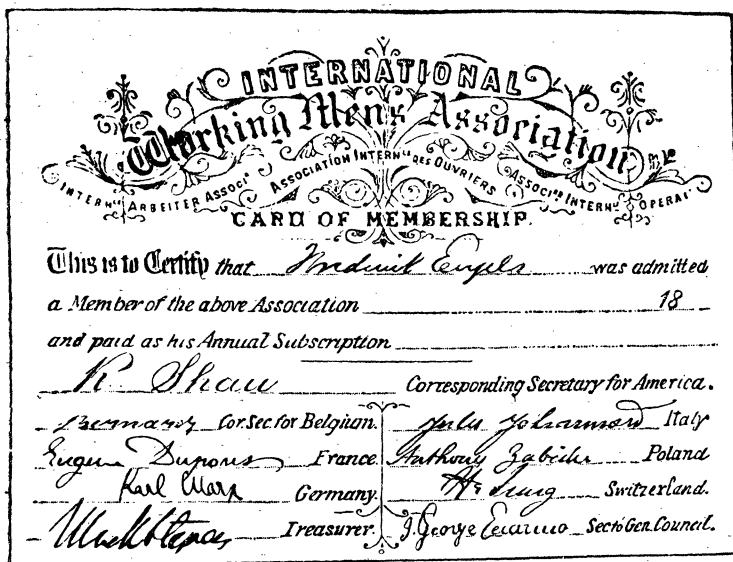 INTERNATIONAL
Working Men's Association
INTERN.LE ARBEITER ASSOCI.N ASSOCIATION INTERN.LE DES OUVRIERS ASSOCI.NE INTERN.LE OPERAI
CARD OF MEMBERSHIP.
This is to Certify that Frederick Engels was admitted
a Member of the above Association 18
and paid as his Annual Subscription
R. Shaw Corresponding Secretary for America.
Bernard Cor. Sec for Belgium. Jules Johannard Italy
Eugene Dupont France. Anthony Zabicki Poland
Karl Marx Germany. H. Jung Switzerland.
Treasurer. J. George Eccarius Sec to Gen. Council.